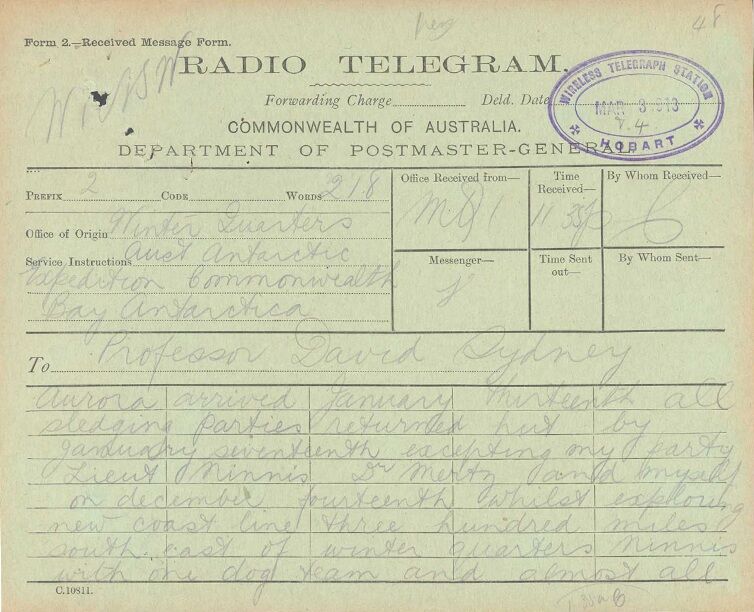 48
Form 2.—Received Message Form.
RADIO TELEGRAM.
Forwarding Charge Deld. Date
WIRELESS TELEGRAPH STATION
MAR 3 1913
7.4
HOBART
COMMONWEALTH OF AUSTRALIA.
DEPARTMENT OF POSTMASTER-GENERAL.
PREFIX 2 CODE WORDS 218
Office Received from—
Time Received— 11 35p
By Whom Received—
Office of Origin Winter Quarters
Service Instructions Aust Antarctic
Expedition Commonwealth
Bay Antarctica
Messenger—
Time Sent out—
By Whom Sent—
To Professor David Sydney
Aurora arrived January thirteenth all
sledging parties returned hut by
January seventeenth excepting my party
Lieut Ninnis Dr Mertz and myself
on december fourteenth whilst exploring
new coast line three hundred miles
south east of winter quarters Ninnis
with one dog team and almost all
C.10811.